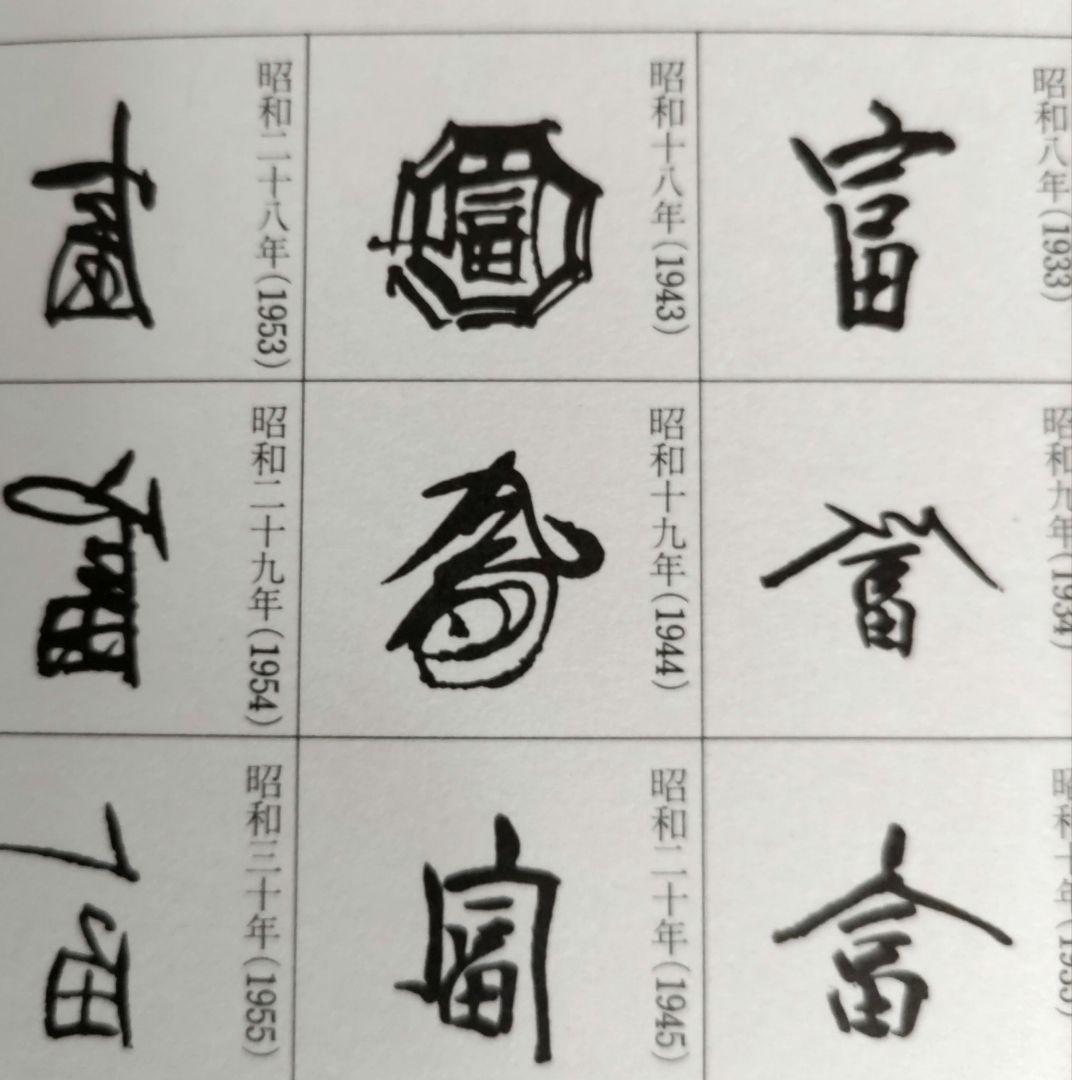 昭和八年(1933)
富
昭和九年(1934)
富
昭和十年(1935)
富
昭和十八年(1943)
富
昭和十九年(1944)
昭和二十年(1945)
富
昭和二十八年(1953)
昭和二十九年(1954)
昭和三十年(1955)